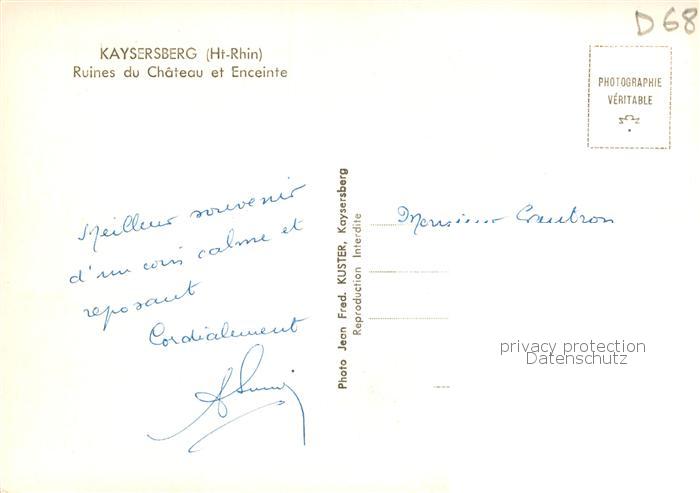 D68
KAYSERSBERG (Ht-Rhin)
Ruines du Château et Enceinte
PHOTOGRAPHIE
VÉRITABLE
Meilleur souvenir
d'un coin calme et
reposant
Cordialement
Photo Jean Fred. KUSTER, Kaysersberg
Reproduction Interdite
Monsieur
privacy protection
Datenschutz